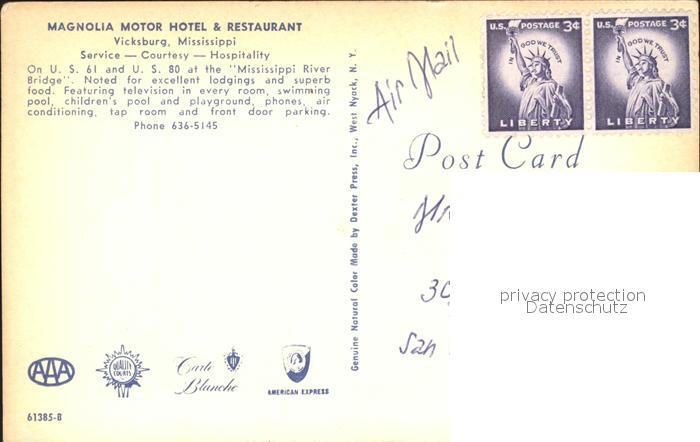 MAGNOLIA MOTOR HOTEL & RESTAURANT
Vicksburg, Mississippi
Service — Courtesy — Hospitality
On U. S. 61 and U. S. 80 at the "Mississippi River
Bridge". Noted for excellent lodgings and superb
food. Featuring television in every room, swimming
pool, children's pool and playground, phones, air
conditioning, tap room and front door parking.
Phone 636-5145
AAA
QUALITY COURTS
Carte Blanche
AMERICAN EXPRESS
61385-B
Genuine Natural Color Made by Dexter Press, Inc., West Nyack, N. Y.
Air Mail
U.S. POSTAGE 3¢
IN GOD WE TRUST
LIBERTY
U.S. POSTAGE 3¢
IN GOD WE TRUST
LIBERTY
Post Card
30
San
privacy protection
Datenschutz